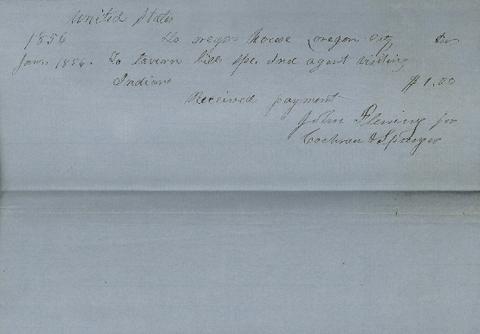 United States
1856 To oregon house oregon City Dr
Jany. 1856. To tavern bill spe. Ind agent visiting
Indians $1.00
Received payment
John Fleming for
Cochran &